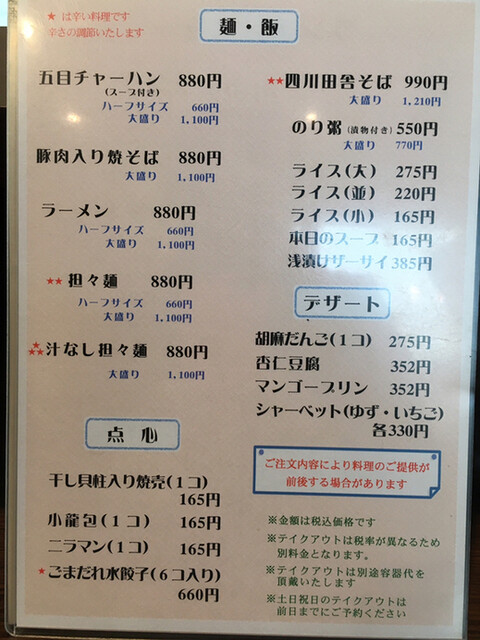 ★ は辛い料理です
辛さの調節いたします
麺・飯
五目チャーハン 880円
(スープ付き)
ハーフサイズ 660円
大盛り 1,100円
豚肉入り焼そば 880円
大盛り 1,100円
ラーメン 880円
ハーフサイズ 660円
大盛り 1,100円
★★ 担々麺 880円
ハーフサイズ 660円
大盛り 1,100円
★★★汁なし担々麺 880円
大盛り 1,100円
点心
干し貝柱入り焼売(1コ)
165円
小龍包(1コ) 165円
ニラマン(1コ) 165円
★ごまだれ水餃子(6コ入り)
660円
★★四川田舎そば 990円
大盛り 1,210円
のり粥(漬物付き)550円
大盛り 770円
ライス(大) 275円
ライス(並) 220円
ライス(小) 165円
本日のスープ 165円
浅漬けザーサイ385円
デザート
胡麻だんご(1コ) 275円
杏仁豆腐 352円
マンゴープリン 352円
シャーベット(ゆず・いちご)
各330円
ご注文内容により料理のご提供が
前後する場合があります
※金額は税込価格です
※テイクアウトは税率が異なるため
別料金となります。
※テイクアウトは別途容器代を
頂戴いたします
※土日祝日のテイクアウトは
前日までにご予約ください